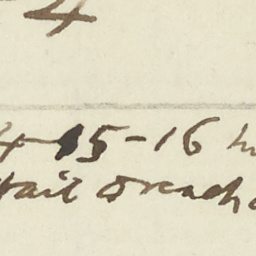 4
4-15-16 h
tail & reach